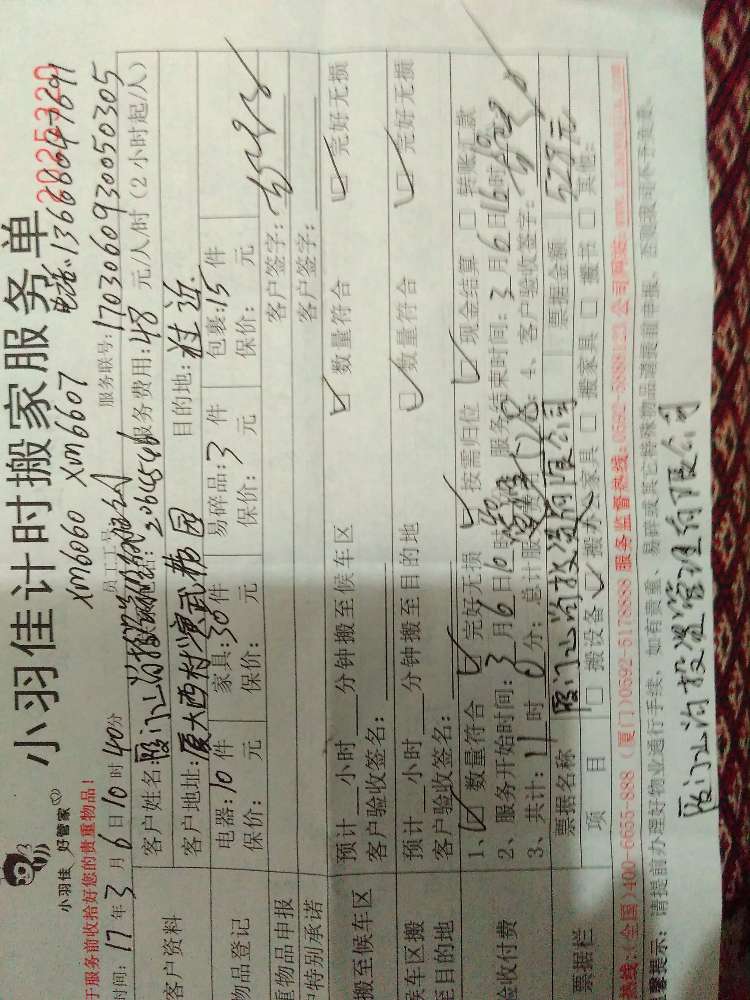 小羽佳计时搬家服务单
小羽佳 好管家
2025320
xm6060 xm6607
于服务前收拾好您的贵重物品!
时间: 17年3月6日10时40分
员工工号
服务联号: 1703060930050305
客户资料
客户姓名
服务费用: 48 元/人/时(2小时起/人)
客户地址: 厦大西村演武花园
目的地: 社近
物品登记
电器: 10件
家具: 30件
易碎品: 3件
包裹: 15件
保价: 元
保价: 元
保价: 元
保价: 元
重物品申报
客户签字:
户特别承诺
客户签字:
搬至候车区
预计 小时 分钟搬至候车区
数量符合
完好无损
客户验收签名:
候车区搬至目的地
预计 小时 分钟搬至目的地
数量符合
完好无损
客户验收签名:
验收付费
1、数量符合 完好无损 按需归位 现金结算 转账汇款
2、服务开始时间: 3月6日10时 服务结束时间: 3月6日16时
3、共计: 4时0分; 总计服务费 4、客户验收签字:
票据栏
票据名称
厦门山海投资有限公司
票据金额
528元
项目
搬设备 搬办公家具 搬家具 搬书 其他:
热线:(全国)400-6655-888 (厦门)0592-5178888 服务监督热线:0592-5888123 公司网站:
馨提示: 请提前办理好物业通行手续, 如有贵重、易碎或其它特殊物品请提前申报, 否则我司不予负责.